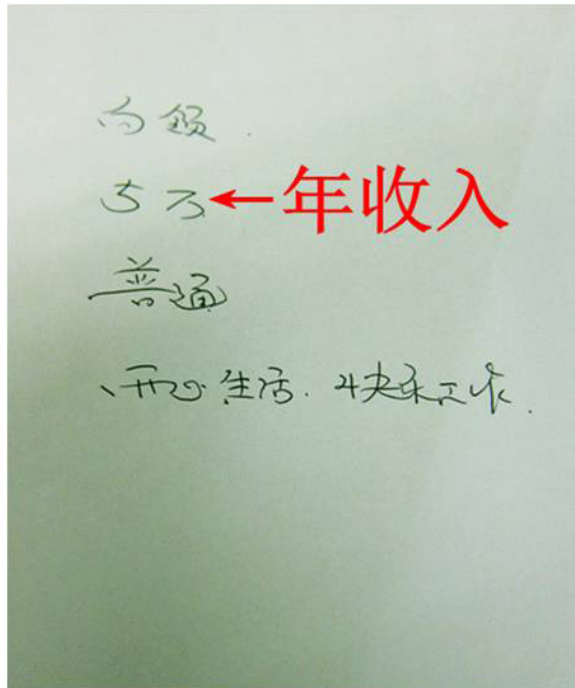 白领.
5万←年收入
普通
开心生活.快乐工作.